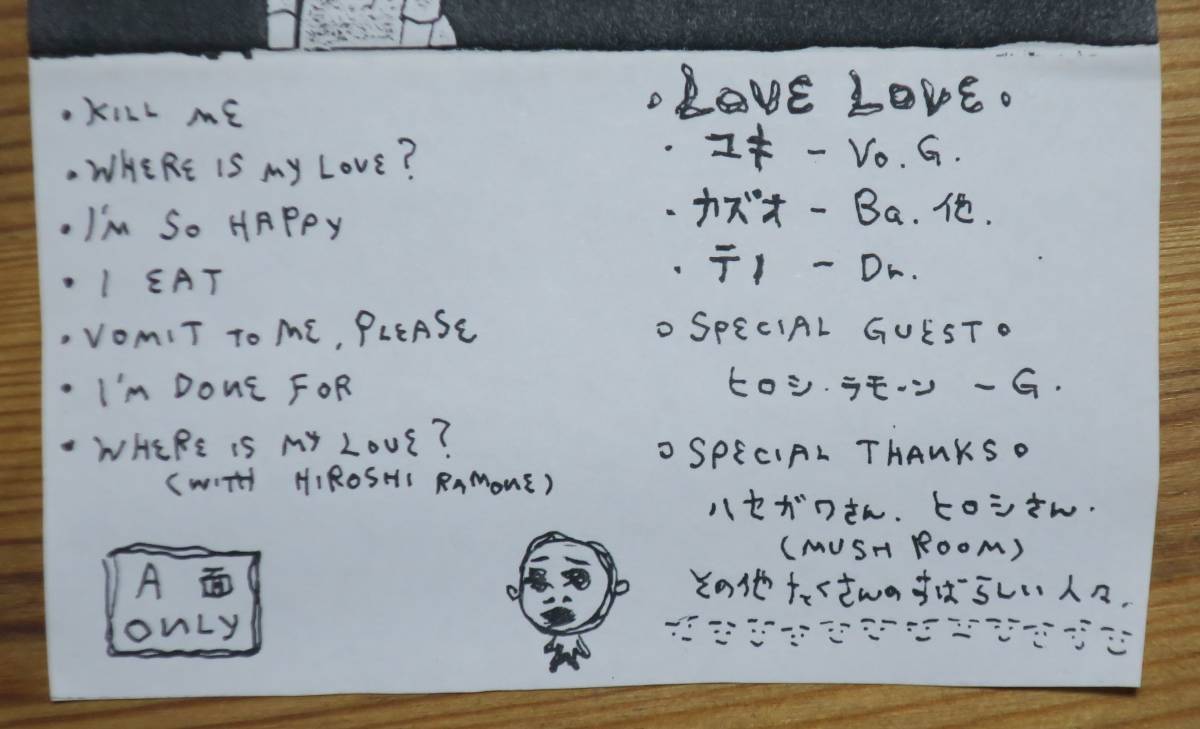 • KILL ME
• WHERE IS MY LOVE?
• I'M SO HAPPY
• I EAT
• VOMIT TO ME, PLEASE
• I'M DONE FOR
• WHERE IS MY LOVE?
(WITH HIROSHI RAMONE)
A面
ONLY
○ LOVE LOVE ○
・ユキ - Vo. G.
・カズオ - Ba. 他.
・テノ - Dr.
○ SPECIAL GUEST ○
ヒロシ・ラモーン - G.
○ SPECIAL THANKS ○
ハセガワさん. ヒロシさん.
(MUSH ROOM)
その他たくさんのすばらしい人々.